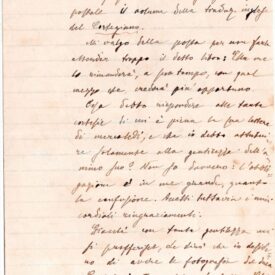 postale il volume della traduz. inglese
del Cortegiano.
Mi valgo della posta per non farle
attender troppo il detto libro: Ella me
lo rimanderà, a suo tempo, con quel
mezzo che crederà più opportuno.
Cosa debbo rispondere alle tante
cortesie di cui è piena la sua lettera
di mercoledì, e che io debbo attribui-
re solamente alla gentilezza dell'a-
nimo suo? Non so davvero: l'obbli-
gazione è in me grande, quanto
la confusione. Accetti tuttavia i miei
cordiali ringraziamenti.
Giacchè con tanta gentilezza mi
si profferisce, Le dirò che io deside-
di avere le fotografie del